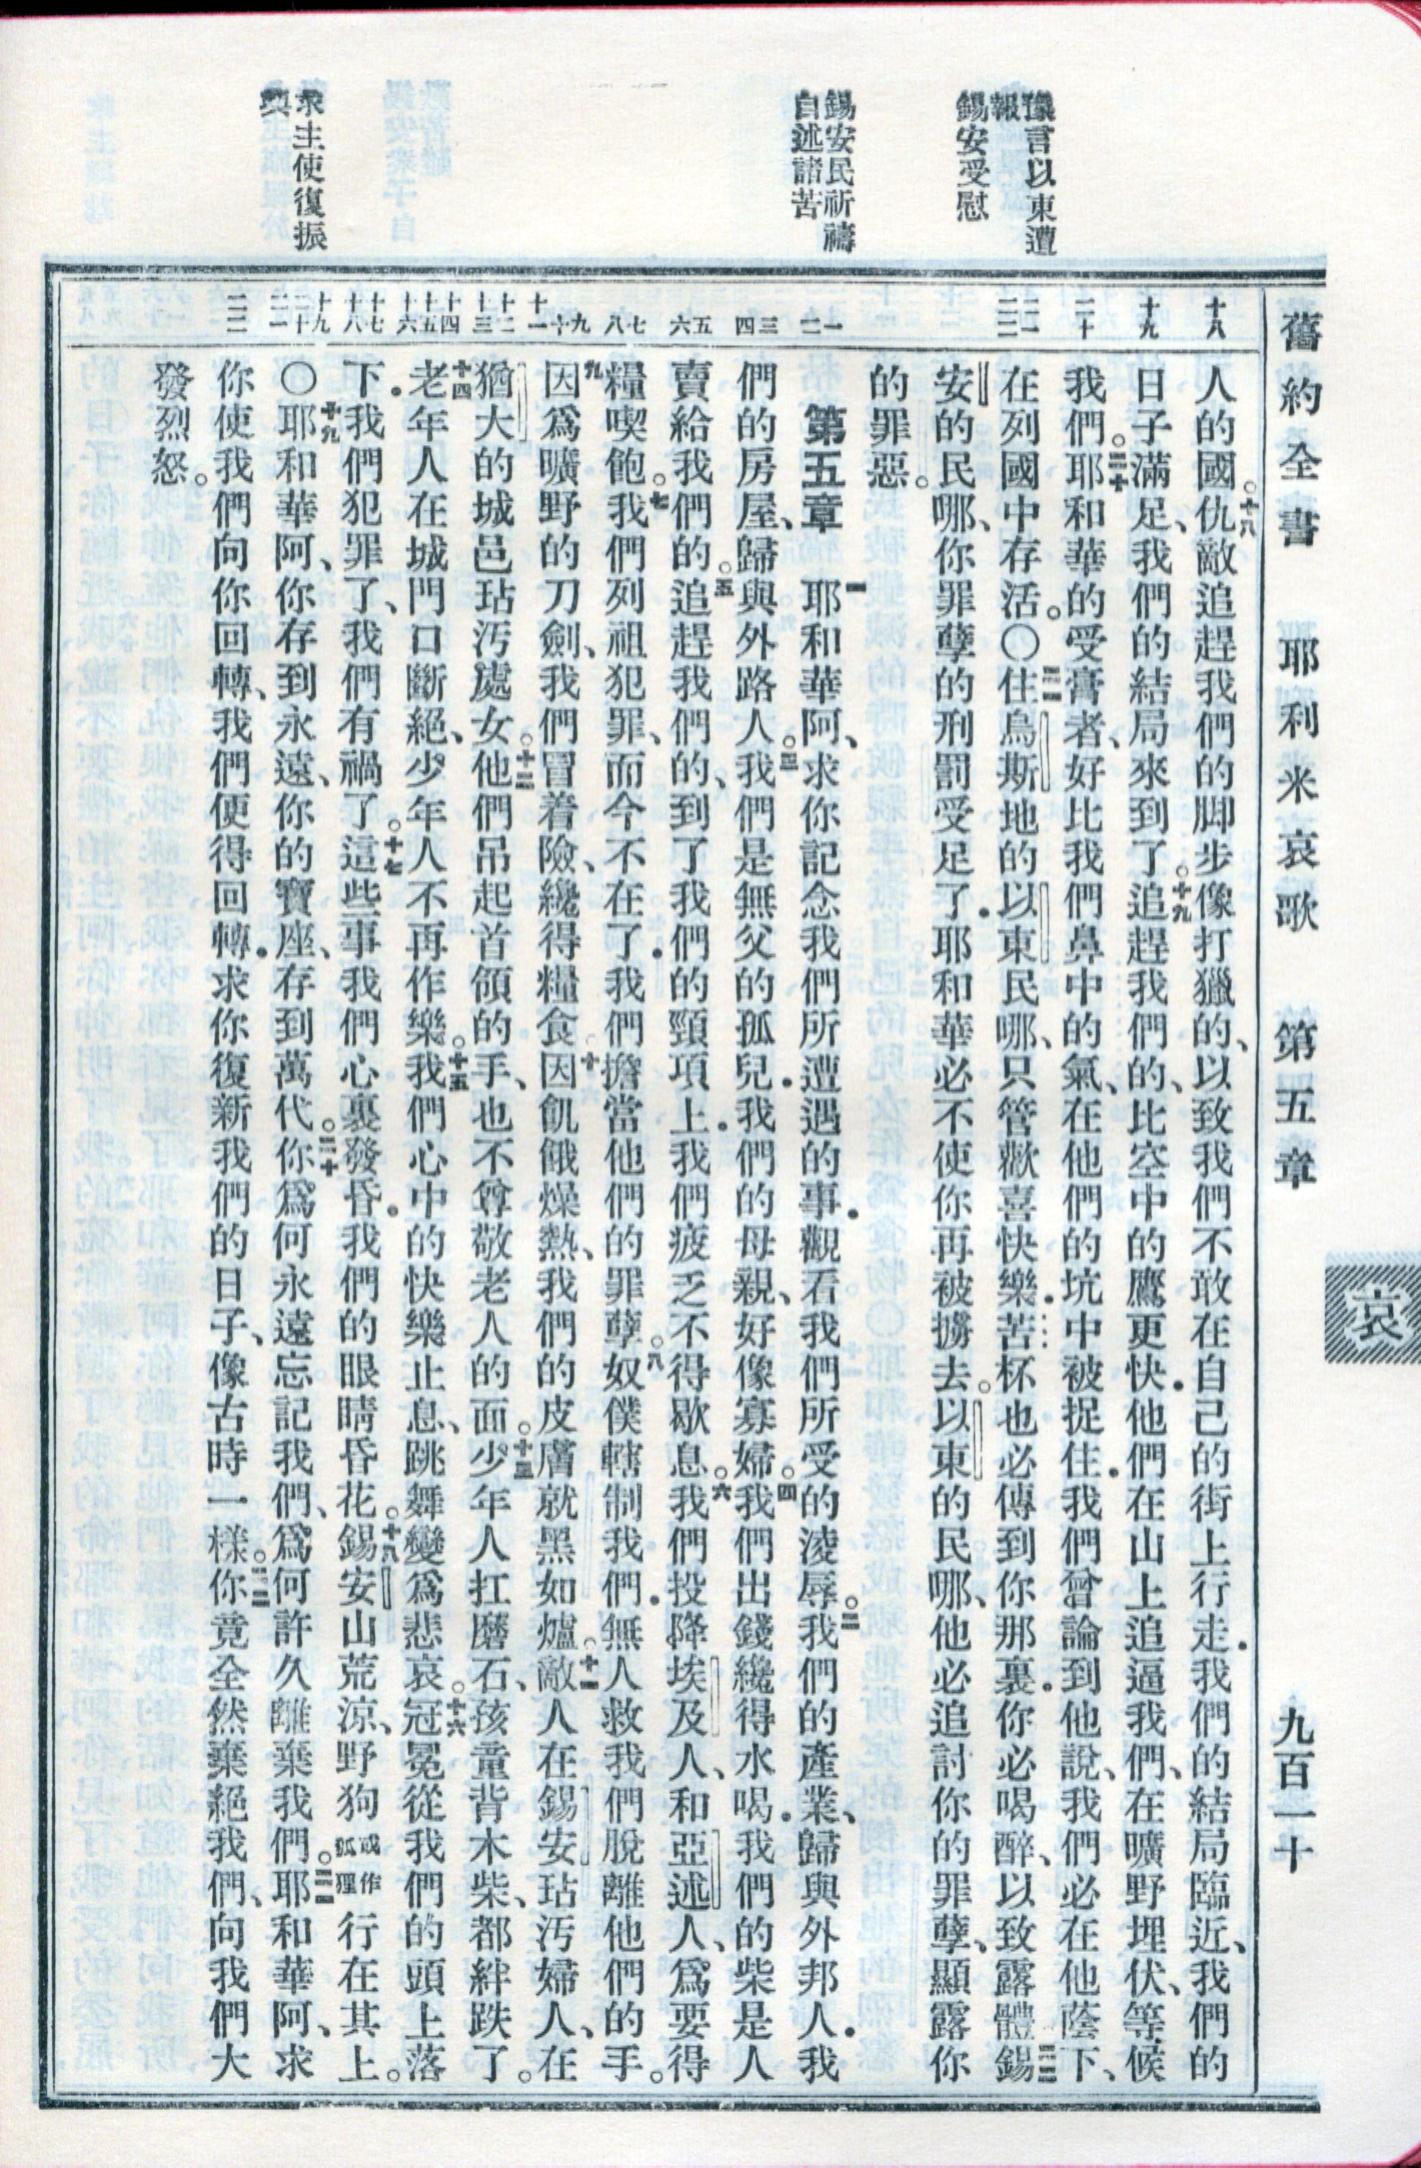 舊約全書 耶利米哀歌 第五章 九百一十
哀
豫言以東遭
報
錫安受慰
錫安民祈禱
自述諸苦
求主使復振
興
十八 十九 二十 二一 二二 一 二 三 四 五 六 七 八 九 十 十一 十二 十三 十四 十五 十六 十七 十八 十九 二十 二一 二二
人的國。十八仇敵追趕我們的脚步像打獵的、以致我們不敢在自己的街上行走．我們的結局臨近、我們的
日子滿足、我們的結局來到了。十九追趕我們的、比空中的鷹更快．他們在山上追逼我們、在曠野埋伏、等候
我們。二十耶和華的受膏者、好比我們鼻中的氣、在他們的坑中被捉住．我們曾論到他說、我們必在他蔭下、
在列國中存活。〇二一住烏斯地的以東民哪、只管歡喜快樂．苦杯也必傳到你那裏．你必喝醉、以致露體二二錫
安的民哪、你罪孽的刑罰受足了．耶和華必不使你再被擄去。以東的民哪、他必追討你的罪孽、顯露你
的罪惡。
第五章 一耶和華阿、求你記念我們所遭遇的事．觀看我們所受的淩辱。二我們的產業、歸與外邦人．我
們的房屋、歸與外路人。三我們是無父的孤兒．我們的母親、好像寡婦。四我們出錢纔得水喝．我們的柴是人
賣給我們的。五追趕我們的、到了我們的頸項上．我們疲乏不得歇息。六我們投降埃及人、和亞述人、爲要得
糧喫飽。七我們列祖犯罪、而今不在了．我們擔當他們的罪孽。八奴僕轄制我們．無人救我們脫離他們的手。
九因爲曠野的刀劍、我們冒着險、纔得糧食十因飢餓燥熱、我們的皮膚就黑如爐。十一敵人在錫安玷汚婦人、在
猶大的城邑玷汚處女。十二他們吊起首領的手、也不尊敬老人的面。十三少年人扛磨石、孩童背木柴、都絆跌了。
十四老年人在城門口斷絕、少年人不再作樂。十五我們心中的快樂止息、跳舞變爲悲哀。十六冠冕從我們的頭上落
下．我們犯罪了、我們有禍了。十七這些事我們心裏發昏．我們的眼睛昏花。十八錫安山荒涼、野狗或作狐狸行在其上。
〇十九耶和華阿、你存到永遠、你的寶座、存到萬代。二十你爲何永遠忘記我們、爲何許久離棄我們。二一耶和華阿、求
你使我們向你回轉、我們便得回轉．求你復新我們的日子、像古時一樣。二二你竟全然棄絕我們、向我們大
發烈怒。